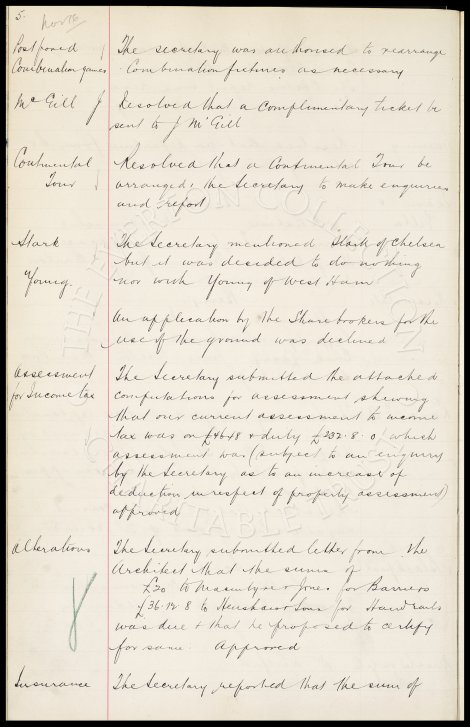 5.
Nov 16
Postponed The secretary was authorised to rearrange
Combination games Combination fixtures as necessary
McGill J Resolved that a complimentary ticket be
sent to J McGill
Continental Resolved that a Continental Tour be
Tour arranged; the Secretary to make enquiries
and report
Stark The Secretary mentioned Stark of Chelsea
but it was decided to do nothing
Young nor with Young of West Ham
An application by the Sharebrokers for the
use of the ground was declined
Assessment The Secretary submitted the attached
for Income tax computations for assessment shewing
that our current assessment to income
tax was on £4648 & duty £232.8.0, which
assessment was (subject to an enquiry
by the Secretary as to an increase of
deduction in respect of property assessment)
approved
Alterations The Secretary submitted letter from the
Architect that the sums of
£20 to & Jones for Barriers
£36.12.8 to Henshaw & Sons for Handrails
was due & that he proposed to certify
for same. Approved
Insurance The Secretary reported that the sum of
THE EVERTON COLLECTION
CHARITABLE TRUST